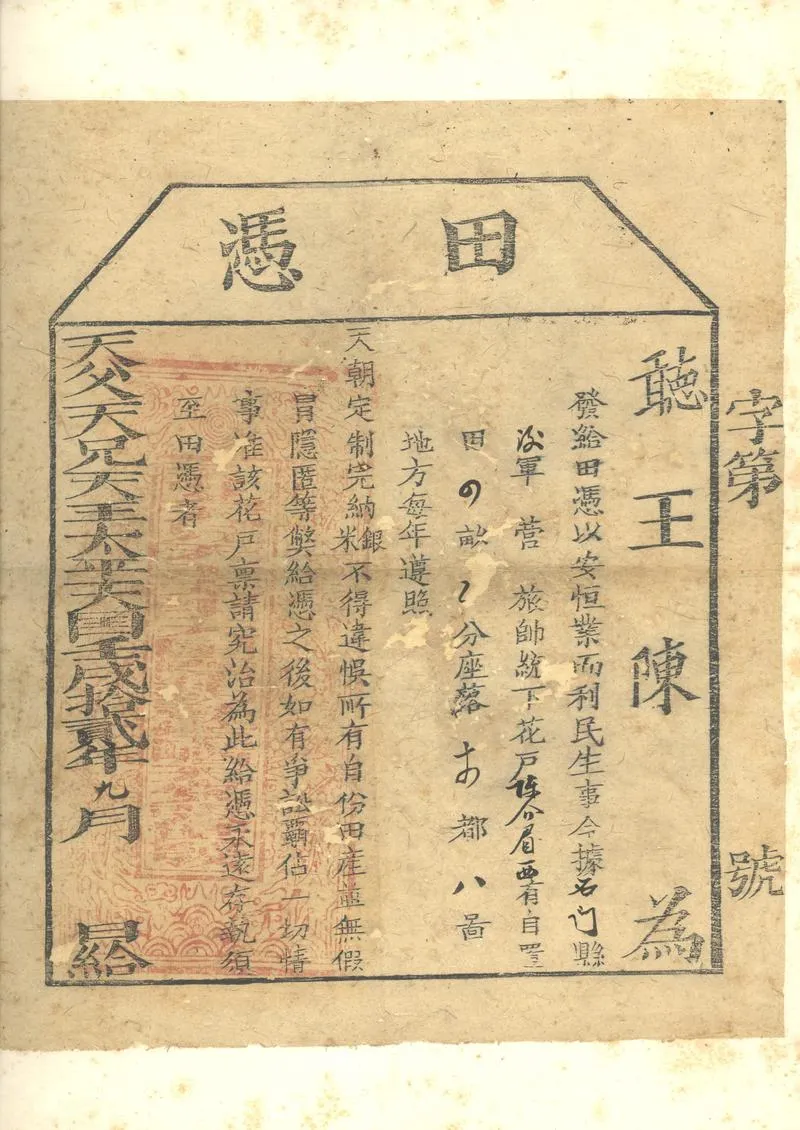 田憑
字第號
聽王陳為
發給田憑以安恒業而利民生事今據石门縣
軍營旅帥統下花戶陳介眉有自置
田畝分座落都八啚
地方每年遵照
天朝定制完納銀米不得違悞所有自份田產並無假
冒隱匿等獘給憑之後如有爭訟霸佔一切情
事准該花戶禀請究治為此給憑永遠存執須
至田憑者
天父天兄天王太平天囯壬戌拾貳年九月日給